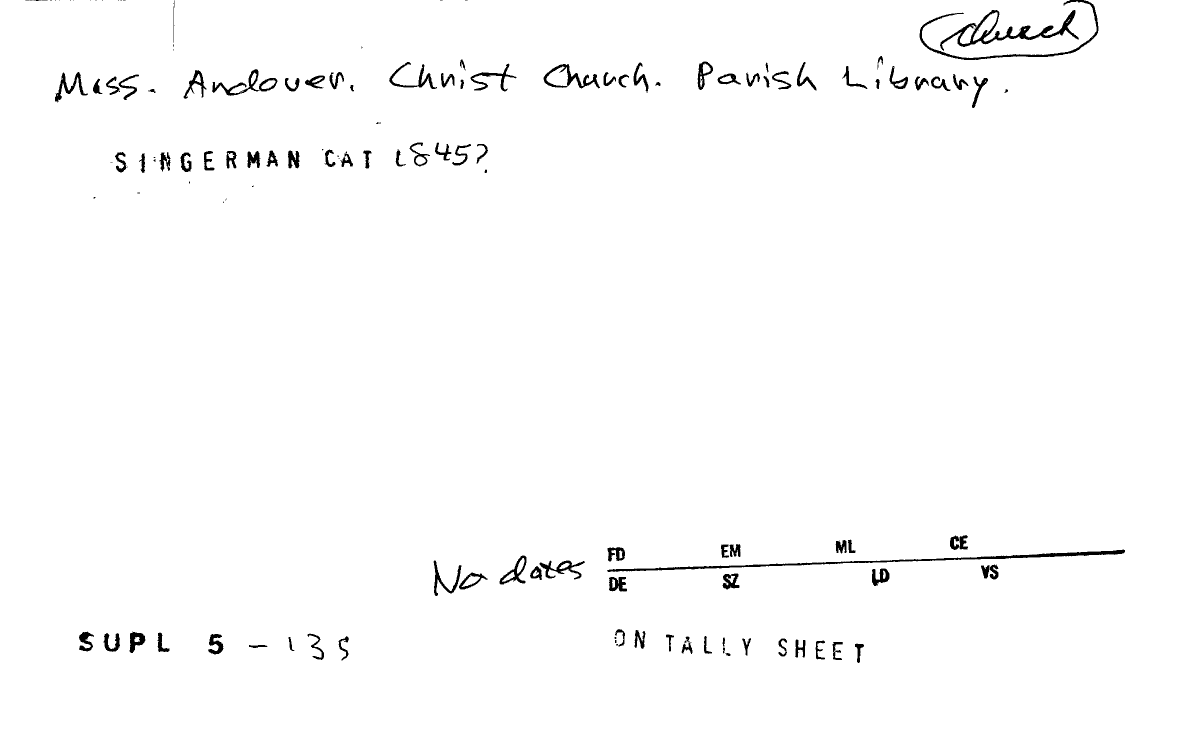 church
Mass. Andover. Christ Church. Parish Library.
SINGERMAN CAT 1845?
FD EM ML CE
No dates
DE SZ LD VS
SUPL 5 - 135
ON TALLY SHEET